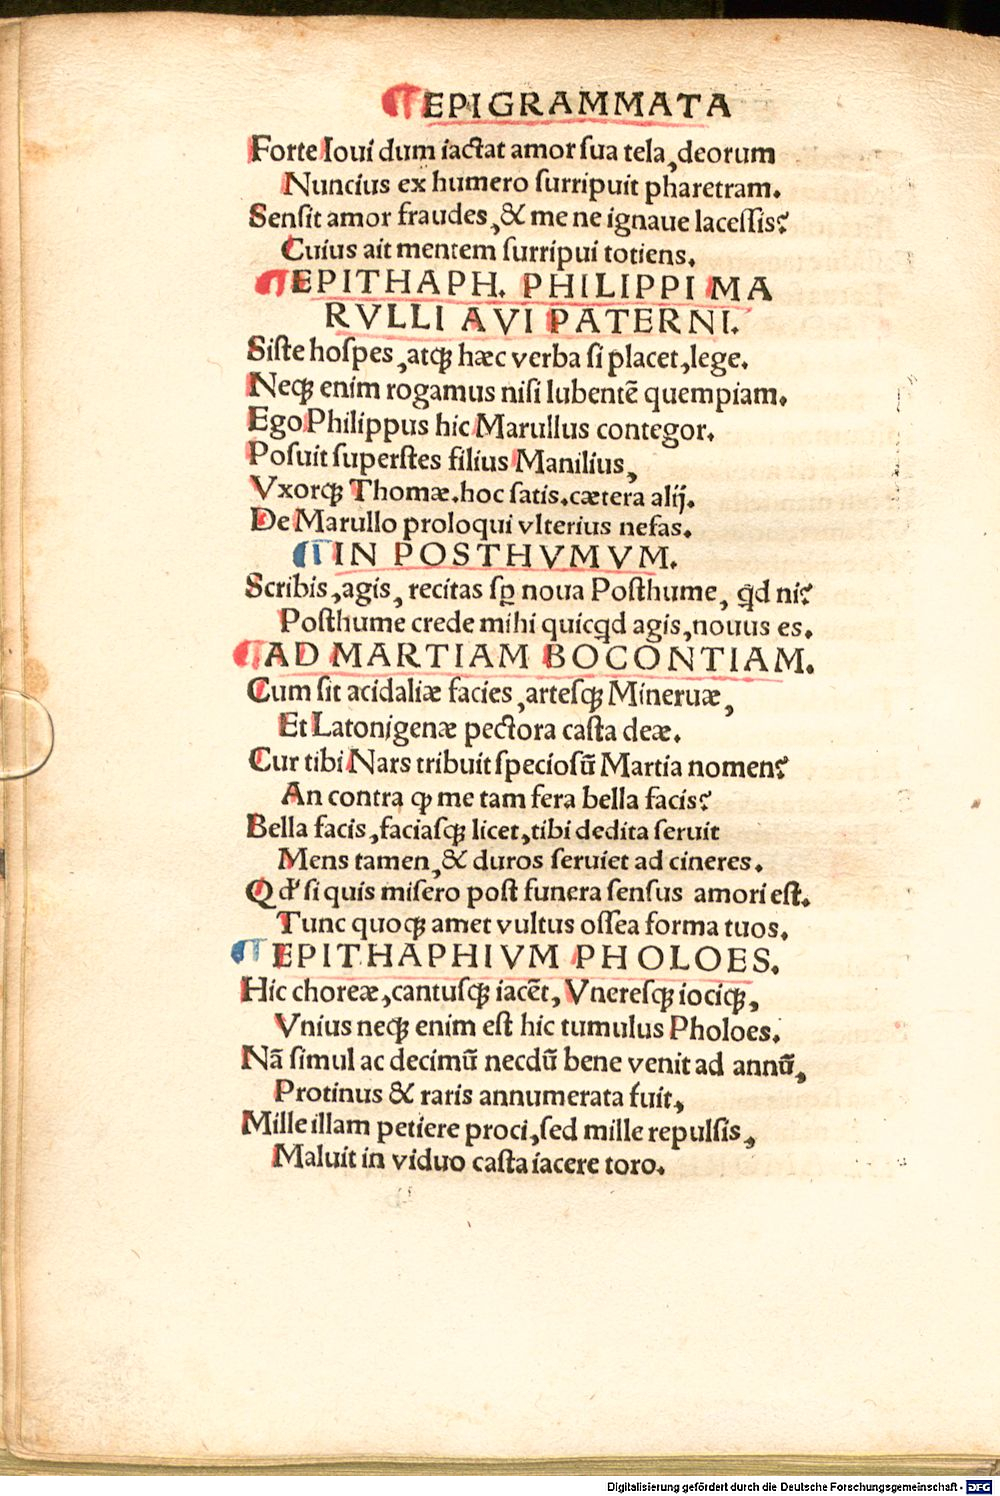 ¶EPIGRAMMATA
Forte Ioui dum iactat amor ſua tela, deorum
Nuncius ex humero ſurripuit pharetram.
Senſit amor fraudes, & me ne ignaue laceſſis?
Cuius ait mentem ſurripui totiens.
¶EPITHAPH. PHILIPPI MA
RVLLI AVI PATERNI.
Siſte hoſpes, atqꝫ hæc verba ſi placet, lege.
Neqꝫ enim rogamus niſi lubentē quempiam.
Ego Philippus hic Marullus contegor.
Poſuit ſuperſtes filius Manilius,
Vxorqꝫ Thomæ. hoc ſatis. cætera alij.
De Marullo proloqui vlterius nefas.
¶IN POSTHVMVM.
Scribis, agis, recitas ſꝑ noua Poſthume, qd ni?
Poſthume crede mihi quicqd agis, nouus es.
¶AD MARTIAM BOCONTIAM.
Cum ſit acidaliæ facies, arteſqꝫ Mineruæ,
Et Latonigenæ pectora caſta deæ.
Cur tibi Nars tribuit ſpecioſū Martia nomen?
An contra ꝙ me tam fera bella facis?
Bella facis, faciaſqꝫ licet, tibi dedita ſeruit
Mens tamen, & duros ſeruiet ad cineres.
Qđ ſi quis miſero poſt funera ſenſus amori eſt.
Tunc quoqꝫ amet vultus oſſea forma tuos.
¶EPITHAPHIVM PHOLOES.
Hic choreæ, cantuſqꝫ iacēt, Vnereſqꝫ iociqꝫ,
Vnius neqꝫ enim eſt hic tumulus Pholoes.
Nā ſimul ac decimū necdū bene venit ad annū,
Protinus & raris annumerata fuit,
Mille illam petiere proci, ſed mille repulſis,
Maluit in viduo caſta iacere toro.
Digitalisierung gefördert durch die Deutsche Forschungsgemeinschaft - DFG